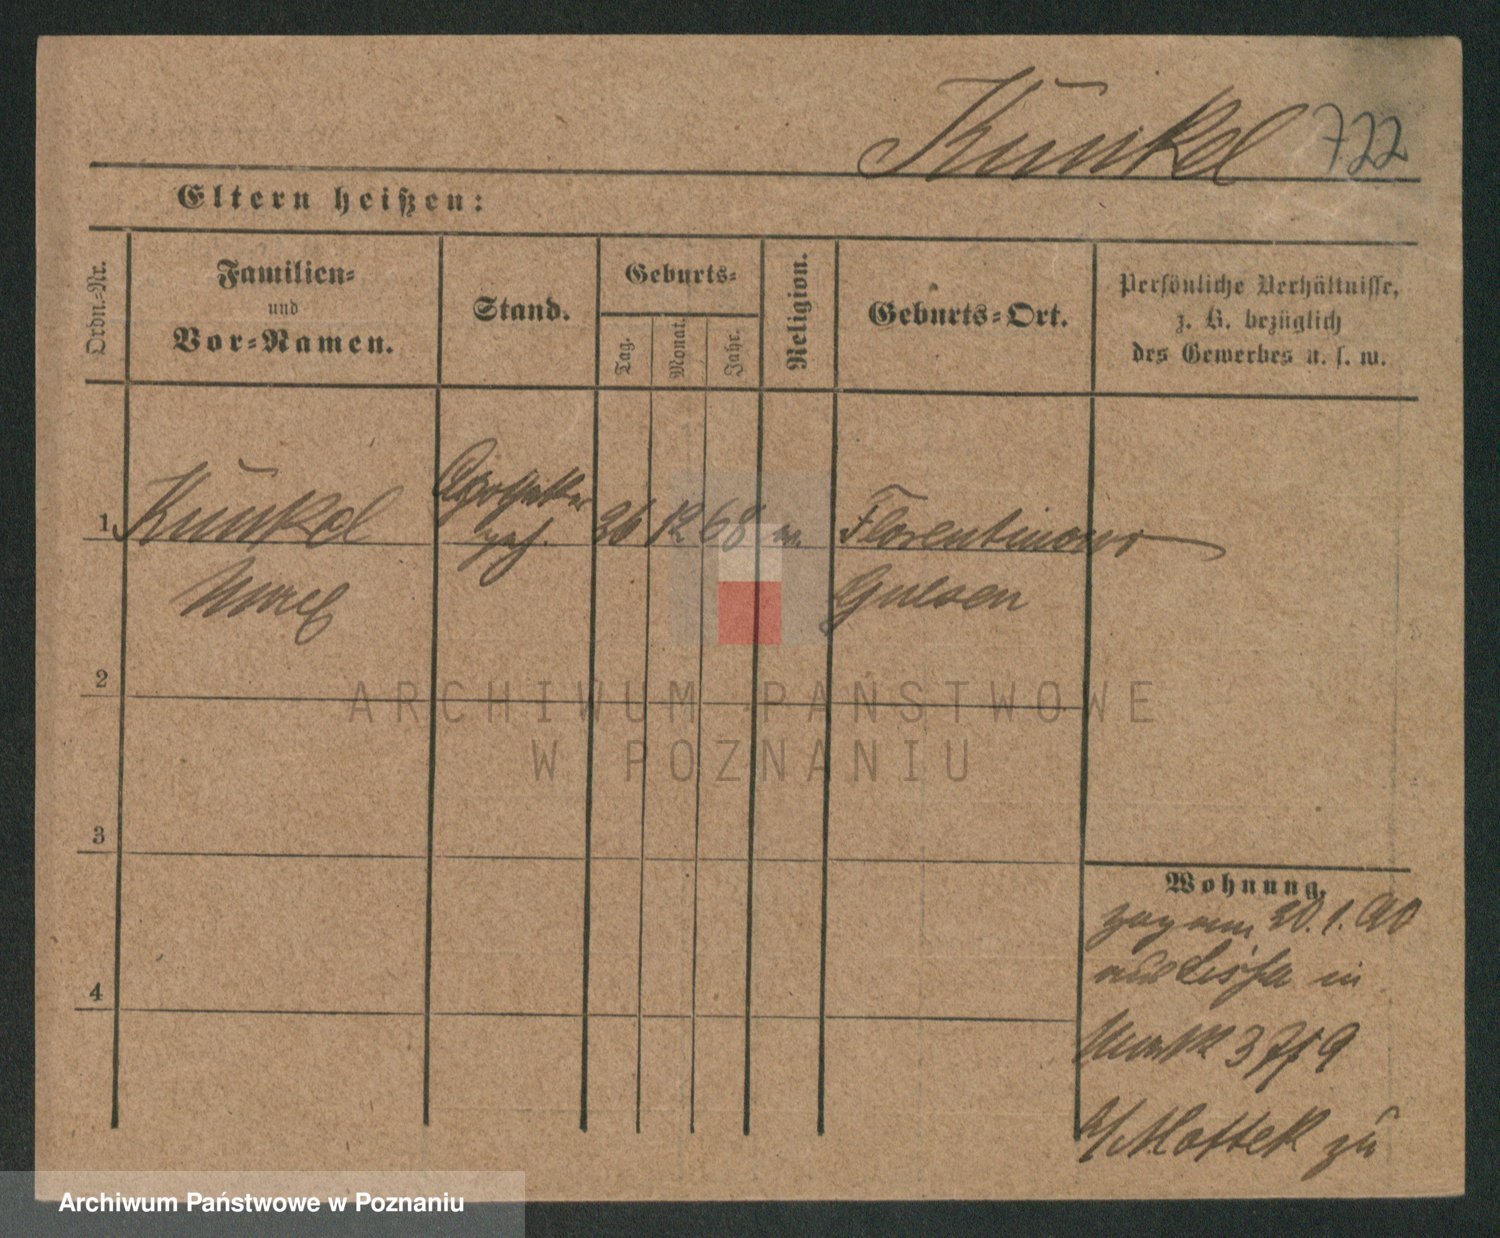 Kunkel 722
Eltern heißen:
Ordn.-Nr.
Familien-
und
Vor-Namen.
Stand.
Geburts-
Tag.
Monat.
Jahr.
Religion.
Geburts-Ort.
Persönliche Verhältnisse,
z. B. bezüglich
des Gewerbes u. s. w.
1 Kunkel Apotheker 26 12 68 Florentinowo
geh.
2
3
4
Wohnung.
zog am 20.1.90
aus Lissa in
Markt 3 9
Mottek zu
ARCHIWUM PAŃSTWOWE
W POZNANIU
Archiwum Państwowe w Poznaniu